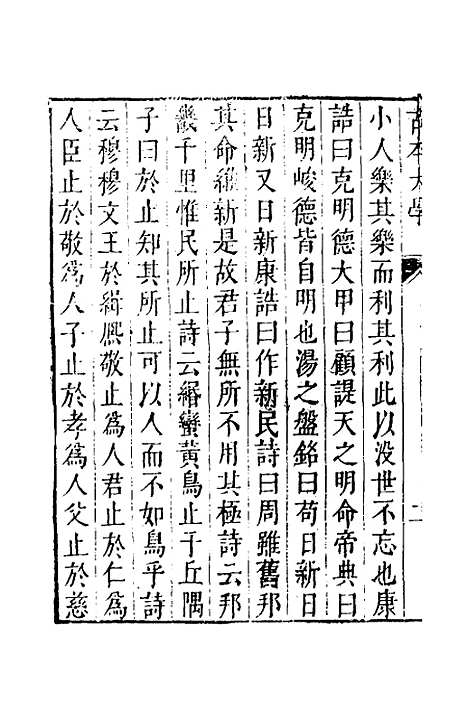 古本大學
二
小人樂其樂而利其利此以没世不忘也康
誥曰克明德大甲曰顧諟天之明命帝典曰
克明峻德皆自明也湯之盤銘曰苟日新日
日新又日新康誥曰作新民詩曰周雖舊邦
其命維新是故君子無所不用其極詩云邦
畿千里惟民所止詩云緡蠻黃鳥止于丘隅
子曰於止知其所止可以人而不如鳥乎詩
云穆穆文王於緝熙敬止爲人君止於仁爲
人臣止於敬爲人子止於孝爲人父止於慈